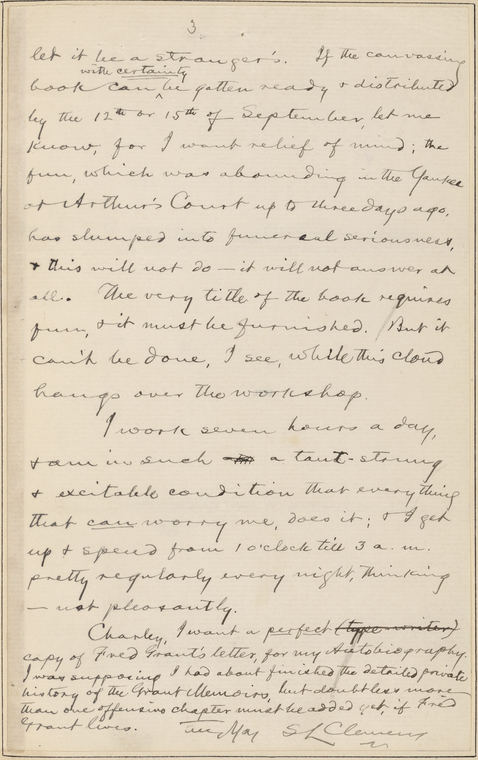 3
let it be a stranger's. If the canvassing
with certainty
book can be gotten ready & distributed
by the 12th or 15th of September, let me
know, for I want relief of mind; the
fun, which was abounding in the Yankee
at Arthur's Court up to three days ago,
has slumped into funereal seriousness,
& this will not do — it will not answer at
all. The very title of the book requires
fun, & it must be furnished. But it
can't be done, I see, while this cloud
hangs over the workshop.
I work seven hours a day,
& am in such a taut-strung
& excitable condition that everything
that can worry me, does it; & I get
up & spend from 1 o'clock till 3 a.m.
pretty regularly every night, thinking
— not pleasantly.
Charley, I want a perfect (type-writer)
copy of Fred Grant's letter, for my Autobiography.
I was supposing I had about finished the detailed private
history of the Grant Memoirs, but doubtless more
than one offensive chapter must be added yet, if Fred
Grant lives. SL Clemens